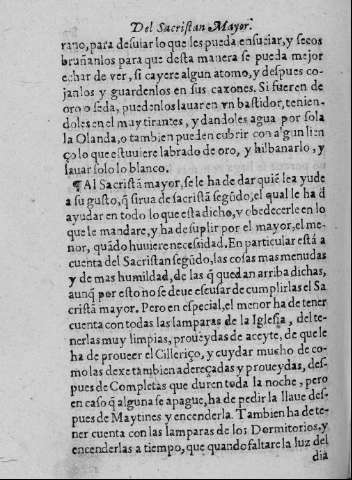 Del Sacristan Mayor.
rano, para desuiar lo que les pueda ensuciar, y secos
bruñanlos para que desta manera se pueda mejor
echar de ver, si cayere algun atomo, y despues co-
janlos y guardenlos en sus caxones. Si fueren de
oro o seda, puedenlos lauar en vn bastidor, tenien-
dolos en el muy tirantes, y dandoles agua por sola
la Olanda, o tambien pueden cubrir con algun lien
ço lo que estuuiere labrado de oro, y hilbanarlo, y
lauar solo lo blanco.
¶ Al Sacristã mayor, se le ha de dar quiẽ lea yude
a su gusto, q̃ sirua de sacristã segũdo, el qual le ha d̃
ayudar en todo lo que esta dicho, y obedecerle en lo
que le mandare, y ha de suplir por el mayor, el me-
nor, quãdo huuiere necessidad. En particular està a
cuenta del Sacristan segũdo, las cosas mas menudas
y de mas humildad, de las q̃ quedan arriba dichas,
aunq̃ por esto no se deue escusar de cumplirlas el Sa
cristã mayor. Pero en especial, el menor ha de tener
cuenta con todas las lamparas de la Iglesia, del te-
nerlas muy limpias, proueydas de aceyte, de que le
ha de proueer el Cilleriço, y cuydar mucho de co-
mo las dexe tambien adereçadas y proueydas, des-
pues de Completas que duren toda la noche, pero
en caso q̃ alguna se apague, ha de pedir la llaue des-
pues de Maytines y encenderla. Tambien ha de te-
ner cuenta con las lamparas de los Dormitorios, y
encenderlas a tiempo, que quando faltare la luz del
dia